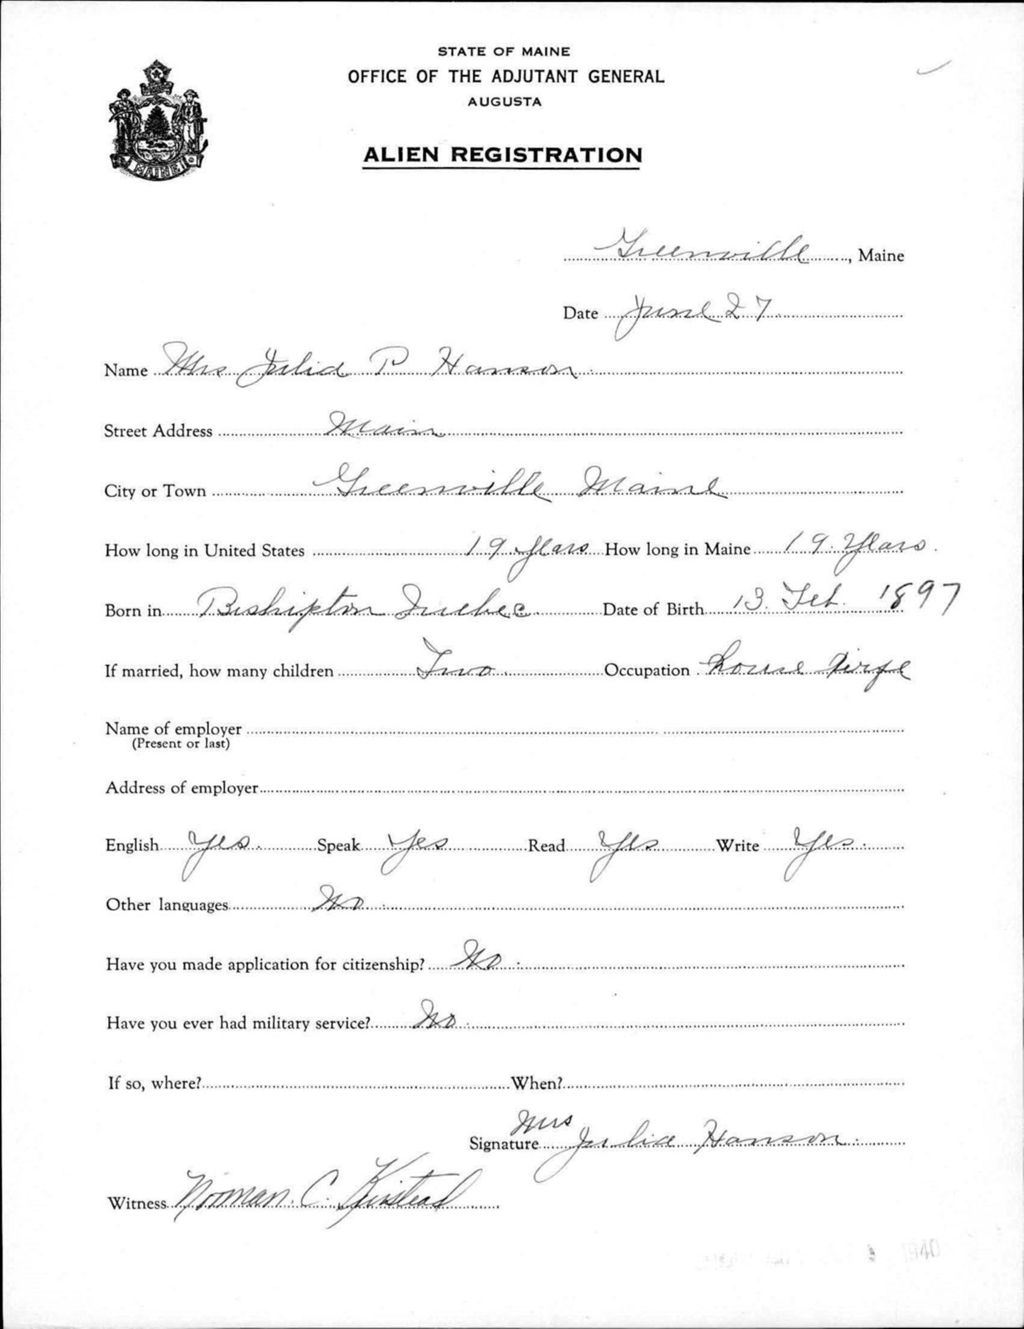 STATE OF MAINE
OFFICE OF THE ADJUTANT GENERAL
AUGUSTA
MAINE
ALIEN REGISTRATION
Greenville, Maine
Date June 27
Name Mrs Julia P Hanson
Street Address Main
City or Town Greenville Maine
How long in United States 19 years How long in Maine 19 Years
Born in Bishipton Quebec Date of Birth 13 Feb 1897
If married, how many children Two Occupation house Wife
Name of employer
(Present or last)
Address of employer
English Yes Speak Yes Read Yes Write Yes
Other languages No
Have you made application for citizenship? No
Have you ever had military service? No
If so, where? When?
Signature Mrs Julia Hanson
Witness Norman C.
1940